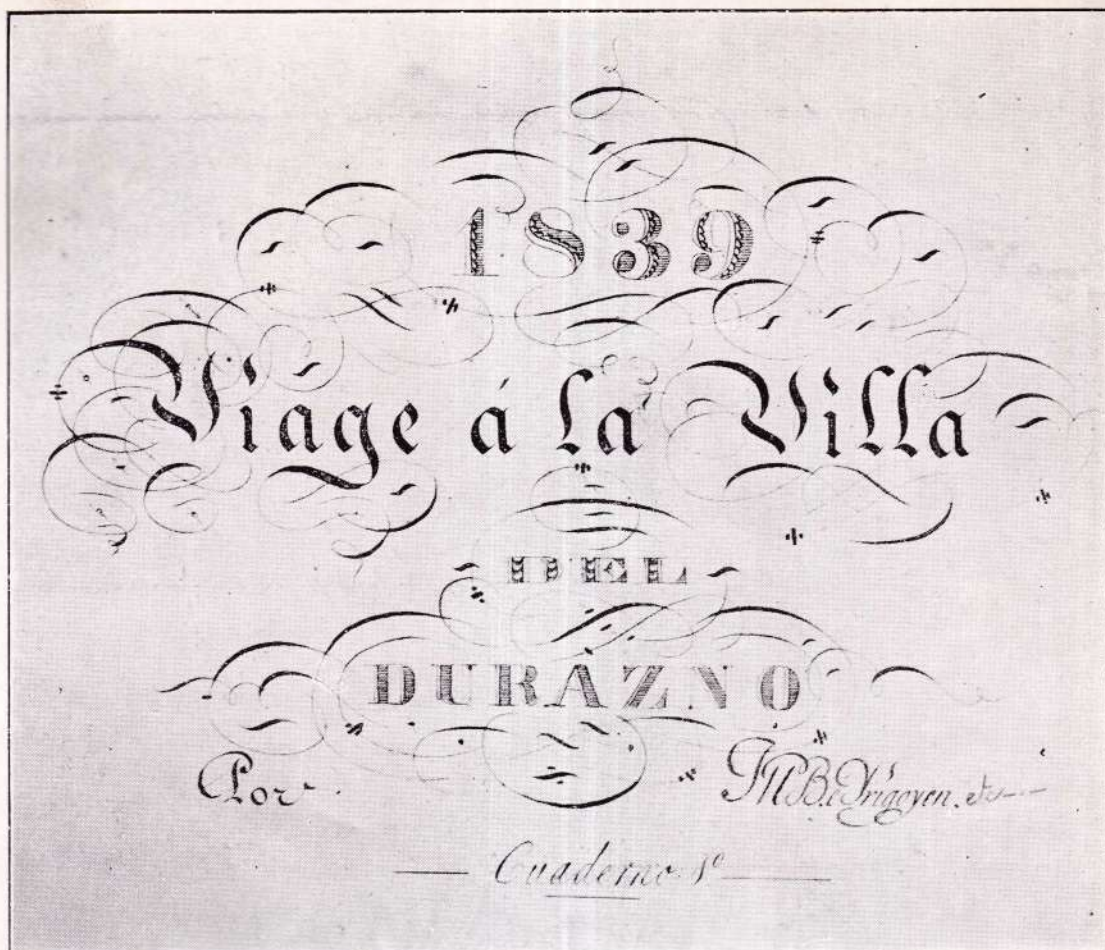 1839
Viáge á la Villa
DEL
DURAZNO
Por JMB.e Yrigoyen. etc
Cuaderno 1º